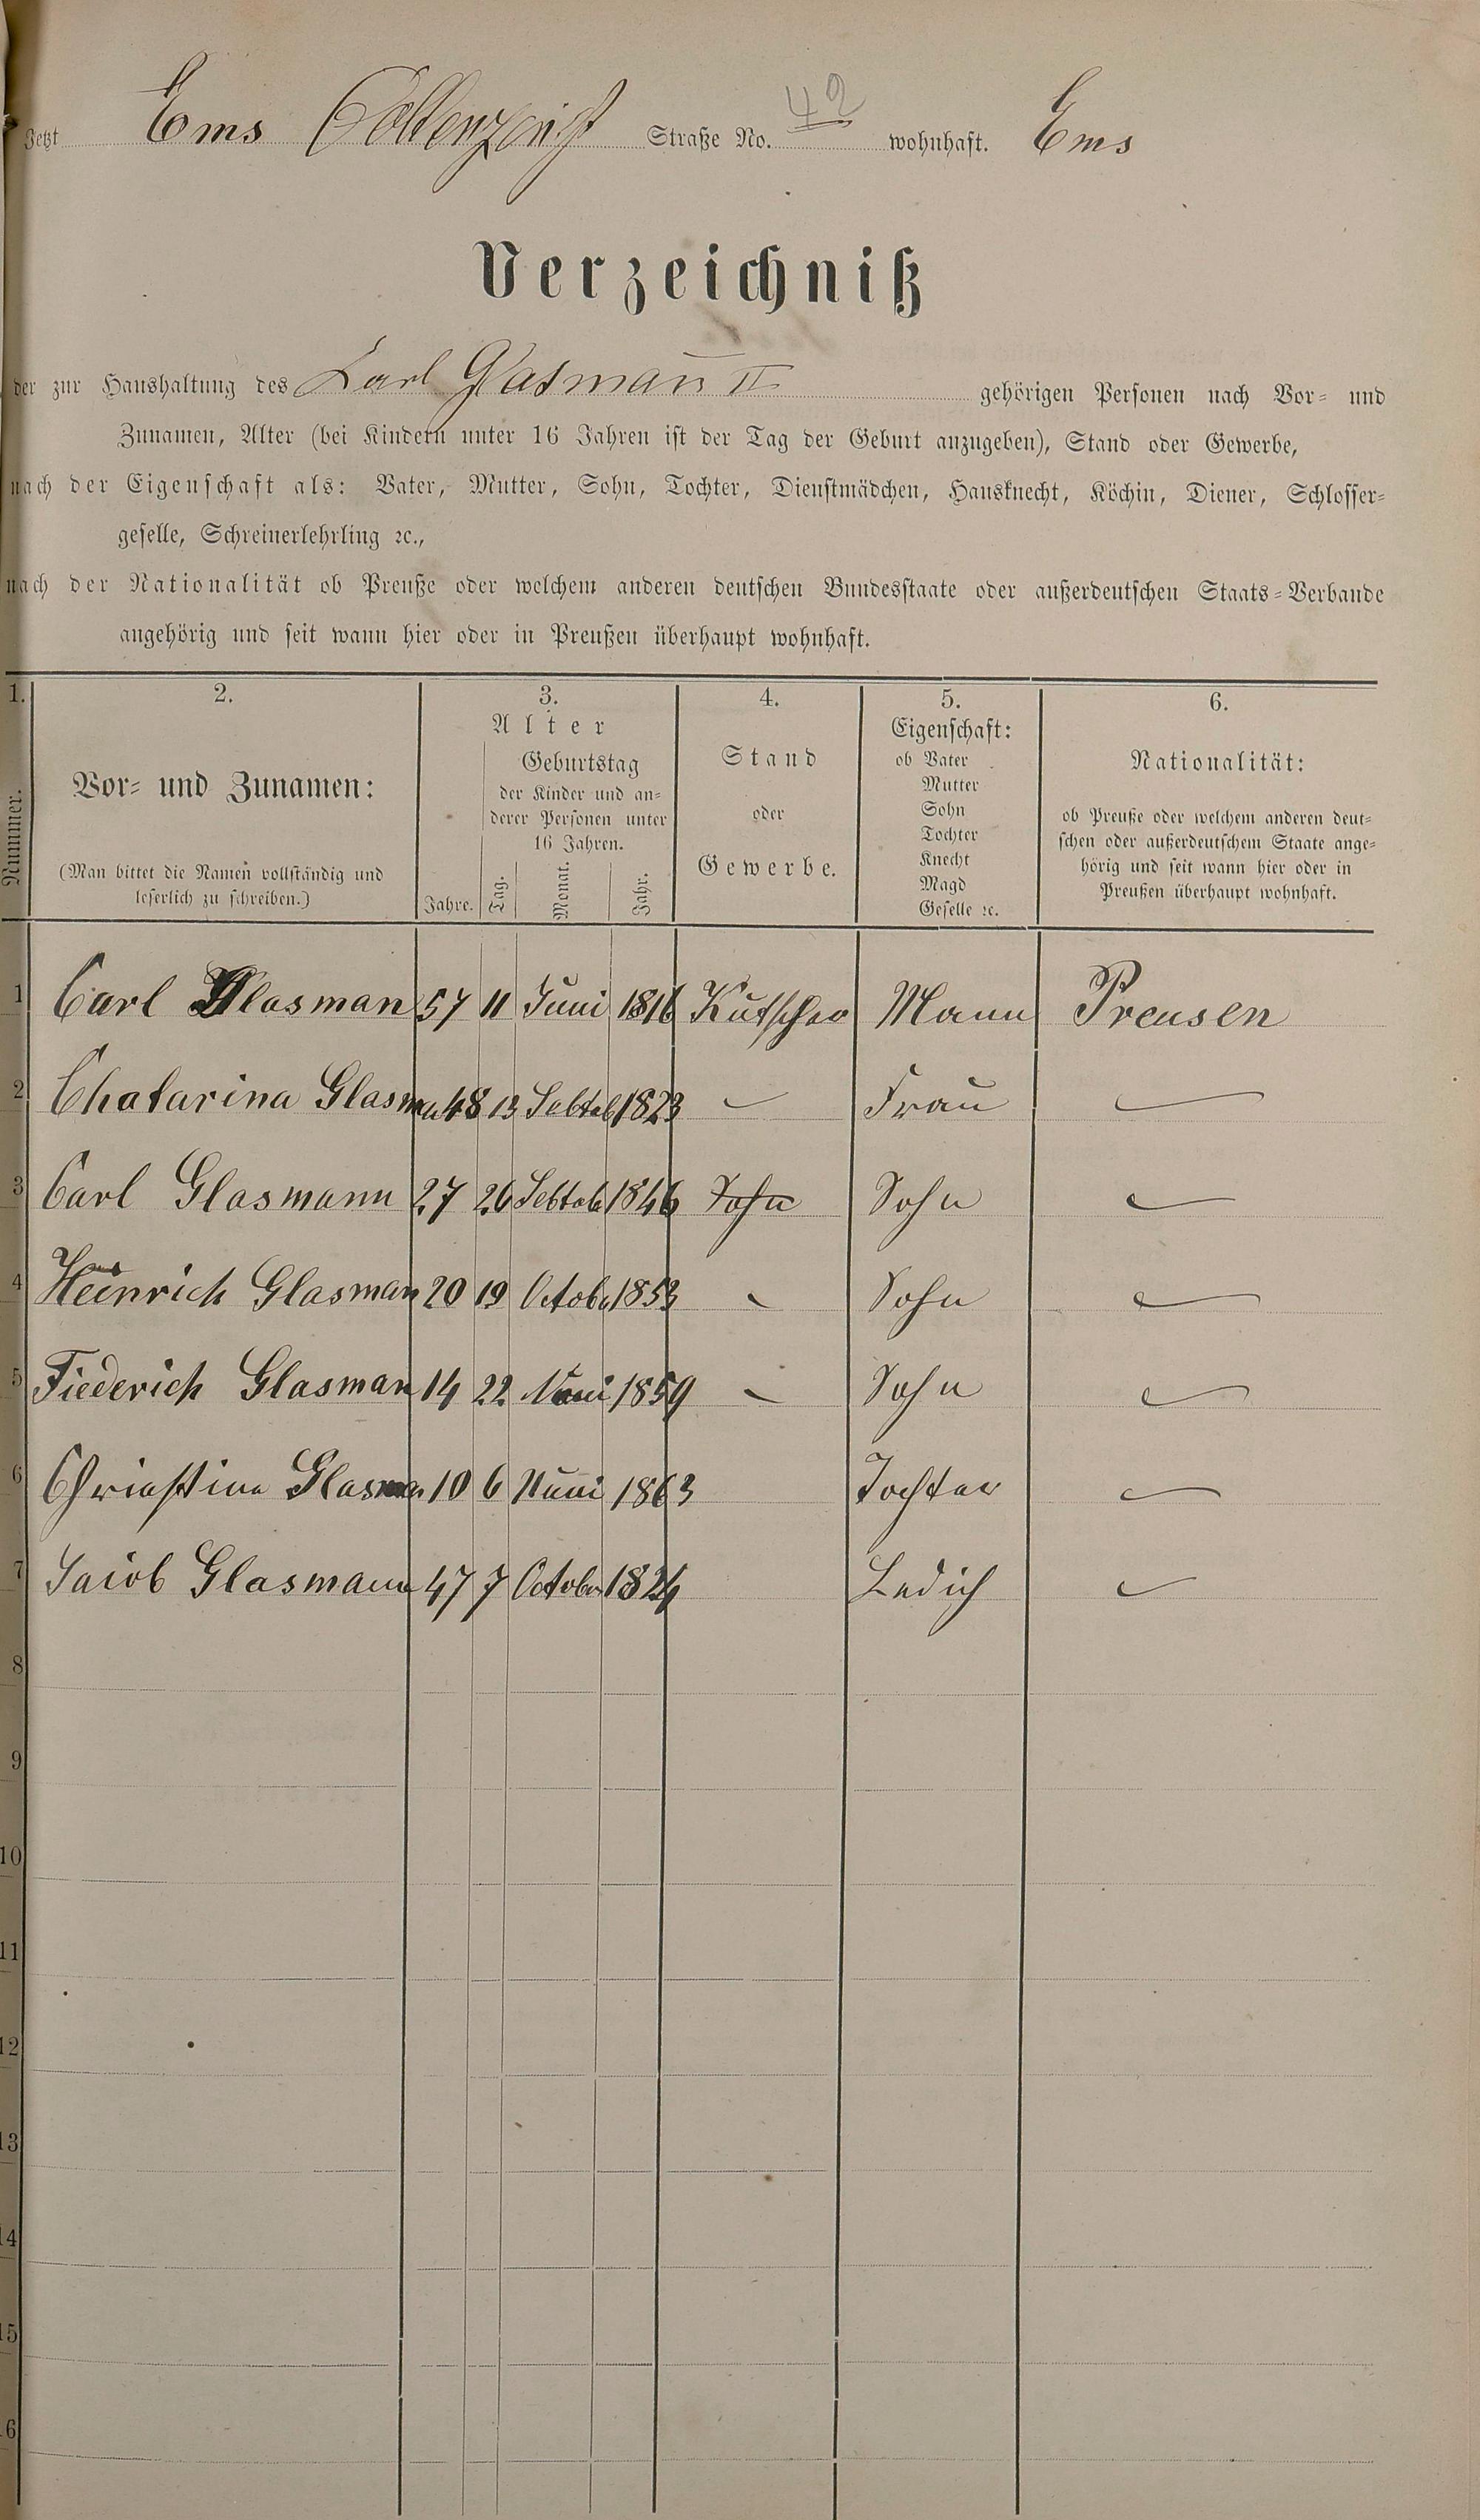 Jetzt Ems Straße No. 42 wohnhaft. Ems
Verzeichniß
der zur Haushaltung des Karl Glasman̄ II gehörigen Personen nach Vor- und
Zunamen, Alter (bei Kindern unter 16 Jahren ist der Tag der Geburt anzugeben), Stand oder Gewerbe,
nach der Eigenschaft als: Vater, Mutter, Sohn, Tochter, Dienstmädchen, Hausknecht, Köchin, Diener, Schlosser-
geselle, Schreinerlehrling ꝛc.,
nach der Nationalität ob Preuße oder welchem anderen deutschen Bundesstaate oder außerdeutschen Staats-Verbande
angehörig und seit wann hier oder in Preußen überhaupt wohnhaft.
1. 2. 3. 4. 5. 6.
Nummer.
Vor- und Zunamen:
(Man bittet die Namen vollständig und
leserlich zu schreiben.)
Alter
Geburtstag
der Kinder und an-
derer Personen unter
16 Jahren.
Jahre. Tag. Monat. Jahr.
Stand
oder
Gewerbe.
Eigenschaft:
ob Vater
Mutter
Sohn
Tochter
Knecht
Magd
Geselle ꝛc.
Nationalität:
ob Preuße oder welchem anderen deut-
schen oder außerdeutschem Staate ange-
hörig und seit wann hier oder in
Preußen überhaupt wohnhaft.
1 Carl Glasman 57 11 Juni 1816 Kutscher Mann Preusen
2 Chatarina Glasman 48 13 Sebteb 1823 — Frau —
3 Carl Glasmann 27 26 Sebteb 1846 Sohn Sohn —
4 Heinrich Glasman 20 19 Octobe 1853 — Sohn —
5 Fiederich Glasman 14 22 1859 — Sohn —
6 Christina Glasman 10 6 1863 Tochter —
7 Jacob Glasmann 47 7 October 1824 Ledich —
8
9
10
11
12
13
14
15
16